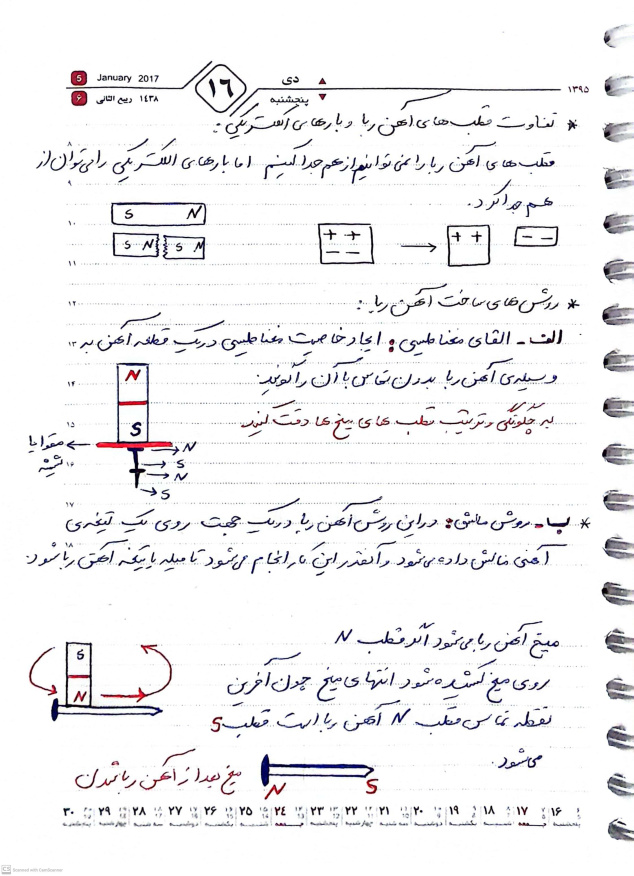 5 January 2017
۶ ۱۴۳۸ ربیع الثانی
۱۶
دی
پنجشنبه
۱۳۹۵
* تفاوت قطب های آهن ربا و بارهای الکتریکی:
قطب های آهن ربا را نمی توانیم از هم جدا کنیم اما بارهای الکتریکی را می توان از
هم جدا کرد.
S N
S N S N
+ +
− −
+ +
− −
* روش های ساخت آهن ربا:
الف- القای مغناطیسی: ایجاد خاصیت مغناطیسی در یک قطعه آهن به
وسیله ی آهن ربا بدون تماس با آن را گویند.
به چگونگی و ترتیب قطب های میخ ها دقت کنید.
N
S
مقوا یا
شیشه
N
S
N
S
* ب- روش مالش: در این روش آهن ربا در یک جهت روی یک تیغه ی
آهنی مالش داده می شود و آنقدر این کار انجام می شود تا میله یا تیغه آهن ربا شود.
میخ آهن ربا می شود اگر قطب N
روی میخ کشیده شود انتهای میخ چون آخرین
نقطه تماس قطب N آهن ربا است قطب S
می شود.
S
N
میخ بعد از آهن ربا شدن
N S
۸
۹
۱۰
۱۱
۱۲
۱۳
۱۴
۱۵
۱۶
۱۷
۱۸
۱۶ ۱۷ ۱۸ ۱۹ ۲۰ ۲۱ ۲۲ ۲۳ ۲۴ ۲۵ ۲۶ ۲۷ ۲۸ ۲۹ ۳۰
CS Scanned with CamScanner